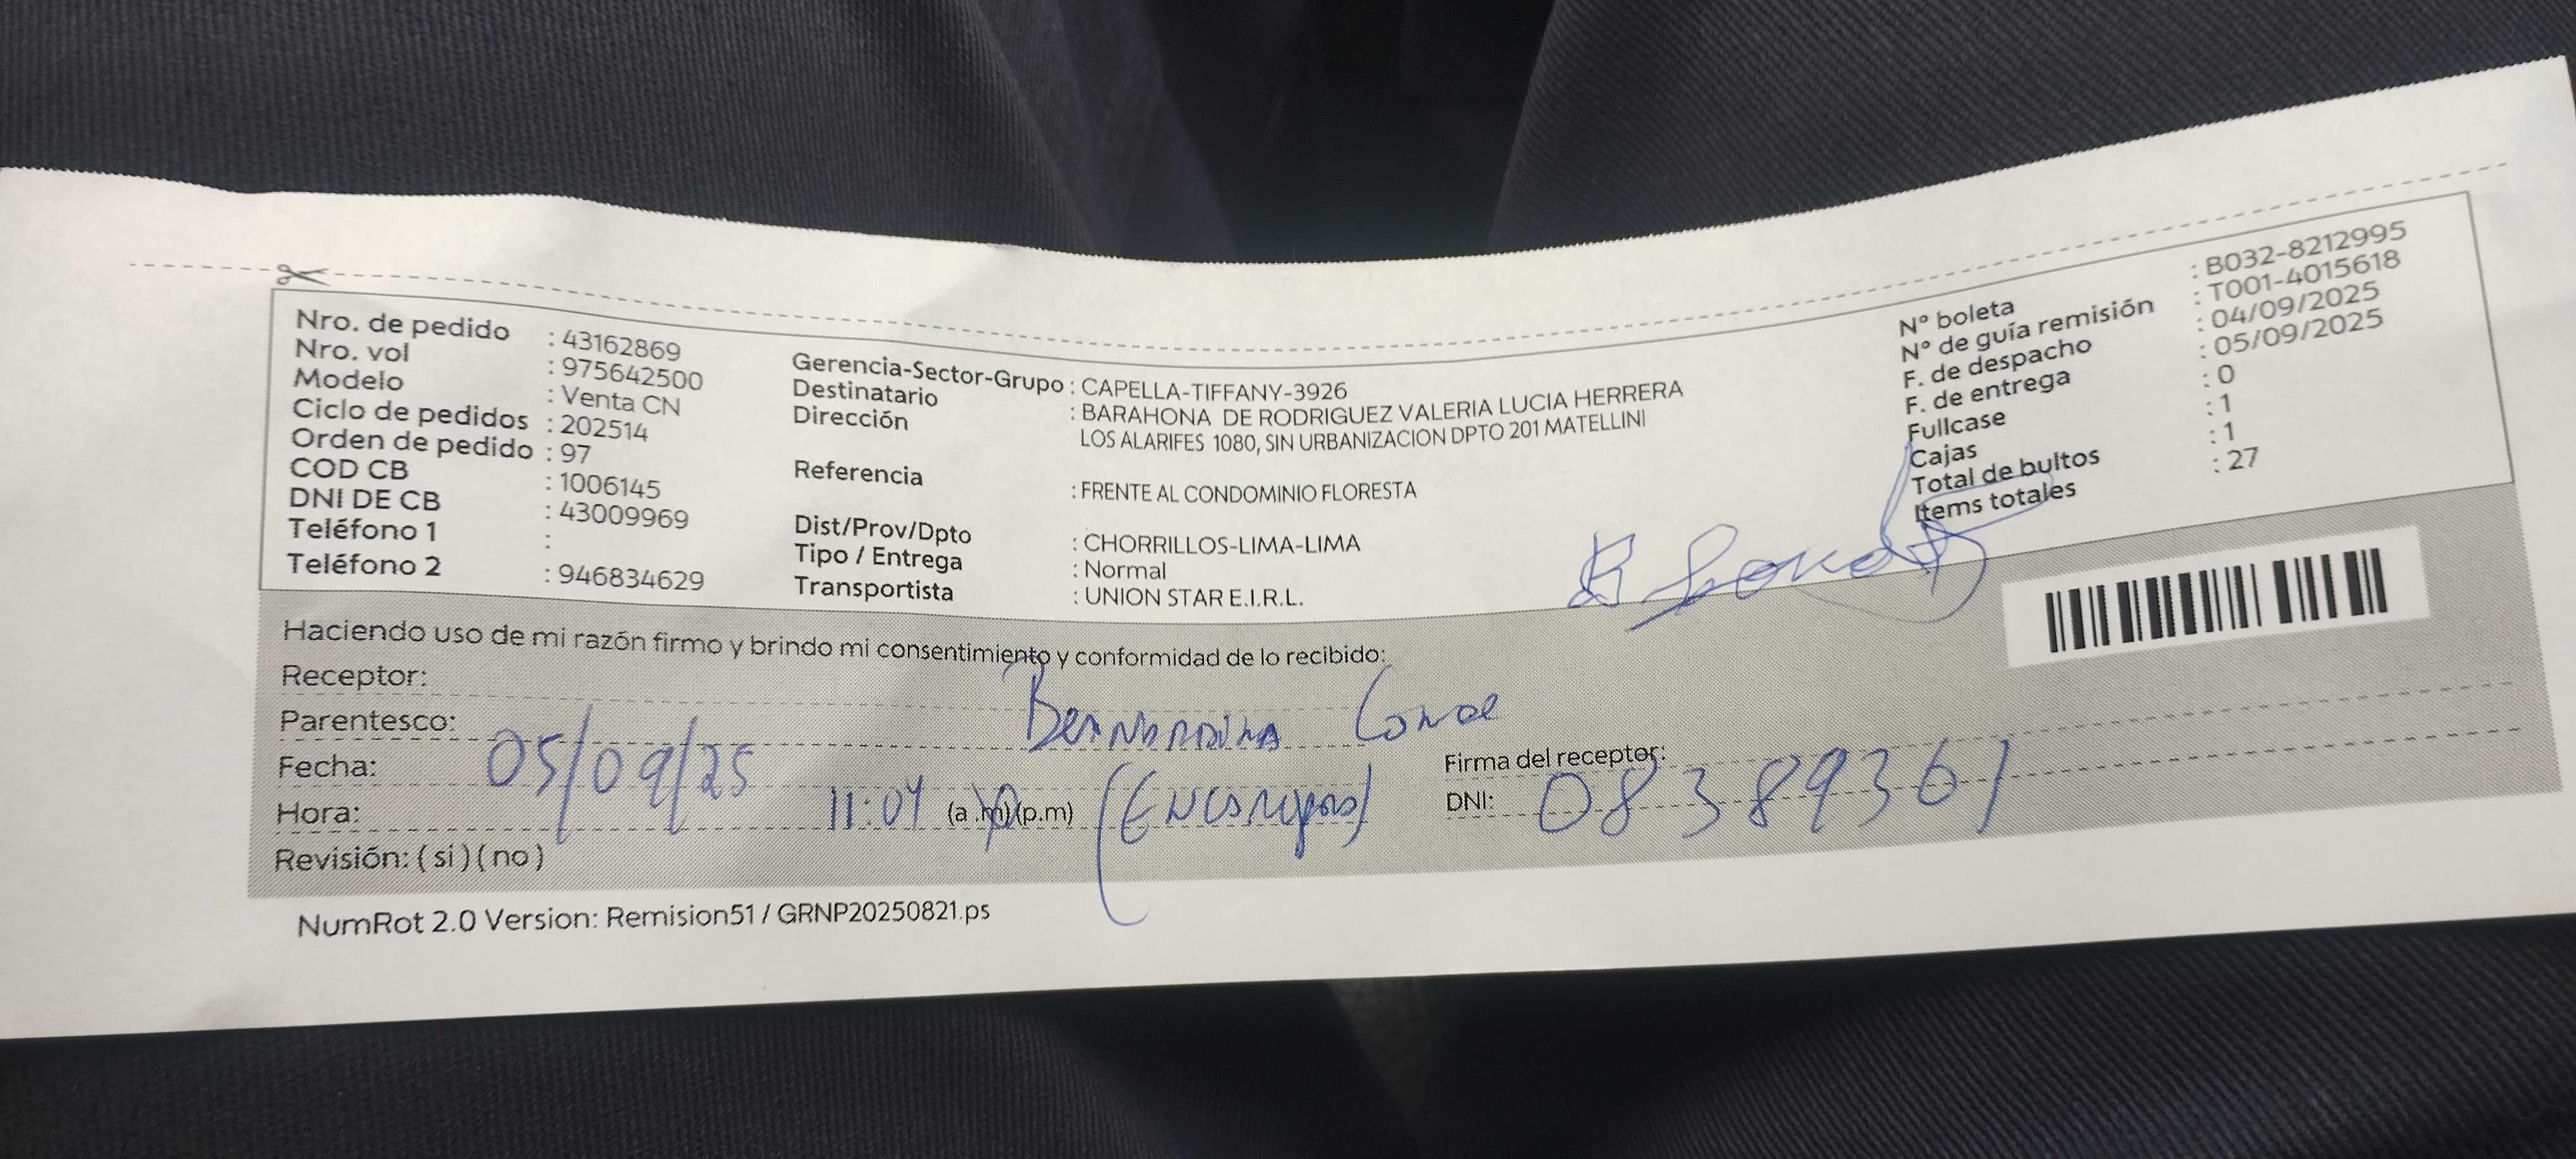 Nro. de pedido : 43162869
Nro. vol : 975642500
Modelo : Venta CN
Ciclo de pedidos : 202514
Orden de pedido : 97
COD CB : 1006145
DNI DE CB : 43009969
Teléfono 1 :
Teléfono 2 : 946834629
Gerencia-Sector-Grupo : CAPELLA-TIFFANY-3926
Destinatario : BARAHONA DE RODRIGUEZ VALERIA LUCIA HERRERA
Dirección LOS ALARIFES 1080, SIN URBANIZACION DPTO 201 MATELLINI
Referencia : FRENTE AL CONDOMINIO FLORESTA
Dist/Prov/Dpto : CHORRILLOS-LIMA-LIMA
Tipo / Entrega : Normal
Transportista : UNION STAR E.I.R.L.
N° boleta : B032-8212995
N° de guía remisión : T001-4015618
F. de despacho : 04/09/2025
F. de entrega : 05/09/2025
Fullcase : 0
Cajas : 1
Total de bultos : 1
Items totales : 27
Haciendo uso de mi razón firmo y brindo mi consentimiento y conformidad de lo recibido:
Receptor:
Parentesco: Bernardina Conde
Fecha: 05/09/25
Firma del receptor:
Hora: 11:04 (a .m)(p.m)
DNI: 08389361
Revisión: ( si ) ( no )
NumRot 2.0 Version: Remision51 / GRNP20250821.ps